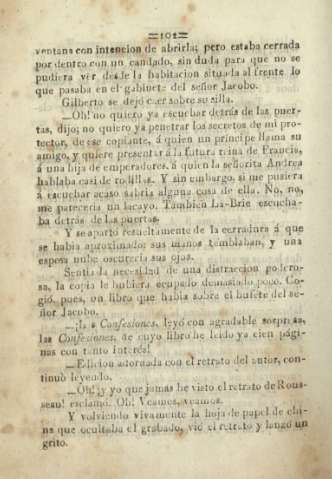 =102=
ventana con intencion de abrirla; pero estaba cerrada
por dentro con un candado, sin duda para que no se
pudiera ver desde la habitacion situada al frente lo
que pasaba en el gabinete del señor Jacobo.
Gilberto se dejó caer sobre su silla.
—Oh! no quiero ya escuchar detrás de las puer-
tas, dijo; no quiero ya penetrar los secretos de mi pro-
tector, de ese copiante, á quien un príncipe llama su
amigo, y quiere presentar á la futura reina de Francia,
á una hija de emperadores, á quien la señorita Andrea
hablaba casi de rodillas. Y sin embargo, si me pusiera
á escuchar acaso sabria alguna cosa de ella. No, no,
me pareceria un lacayo. Tambien La-Brie escucha-
ba detrás de las puertas.
Y se apartó resueltamente de la cerradura á que
se habia aproximado; sus manos temblaban, y una
espesa nube oscurecia sus ojos.
Sentia la necesidad de una distraccion podero-
sa, la copia le hubiera ocupado demasiado poco. Co-
gió, pues, un libro que habia sobre el bufete del se-
ñor Jacobo.
—¡Las Confesiones, leyó con agradable sorpresa,
las Confesiones, de cuyo libro he leido ya cien pági-
nas con tanto interés!
—Edicion adornada con el retrato del autor, con-
tinuó leyendo.
—Oh! ¡y yo que jamas he visto el retrato de Rous-
seau! esclamó. Oh! Veamos, veamos.
Y volviendo vivamente la hoja de papel de chi-
na que ocultaba el grabado, vió el retrato y lanzó un
grito.